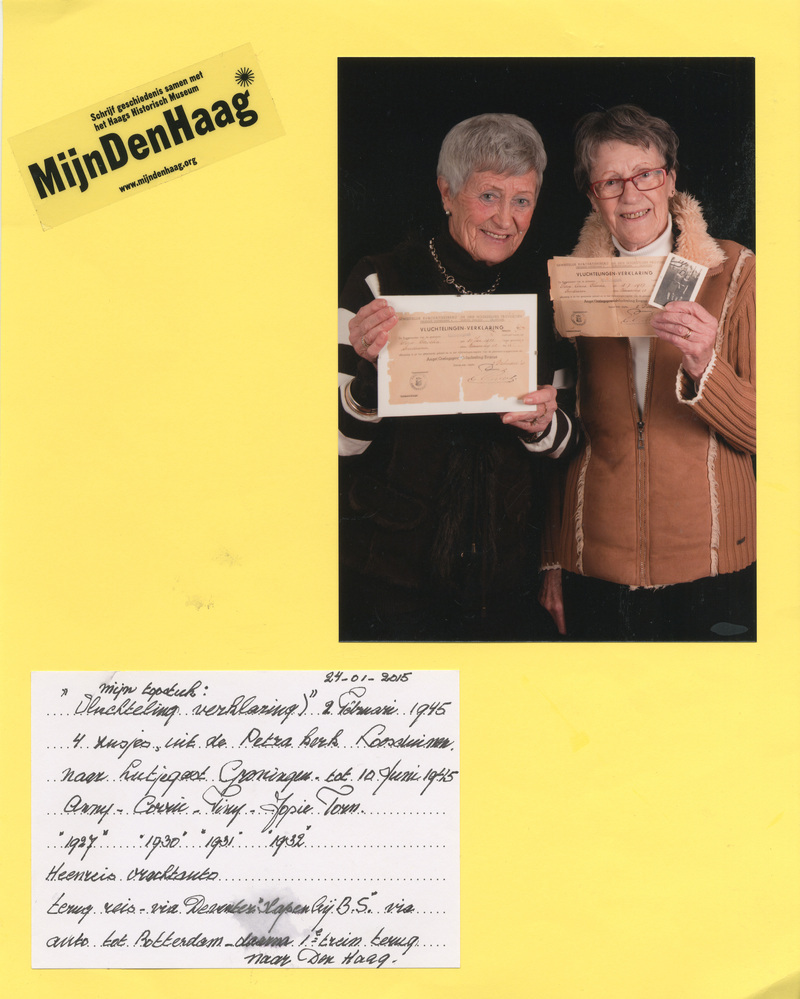 Schrijf geschiedenis samen met
het Haags Historisch Museum
MijnDenHaag
www.mijndenhaag.org
VLUCHTELINGEN-VERKLARING
VLUCHTELINGEN-VERKLARING
24-01-2015
" mijn topstuk:
Vluchteling verklaring)" 2 Februari 1945
4 zusjes, uit de Petra kerk Loosduinen.
naar Lutjegast Groningen - tot 10 Juni 1945
Anny - Corrie - Tiny - Jopie Torn.
"1927" "1930" "1931" "1932"
Heenreis vrachtauto
terug reis - via Deventer "slapen bij B.S." via
auto tot Rotterdam - daarna 1e trein terug
naar Den Haag.